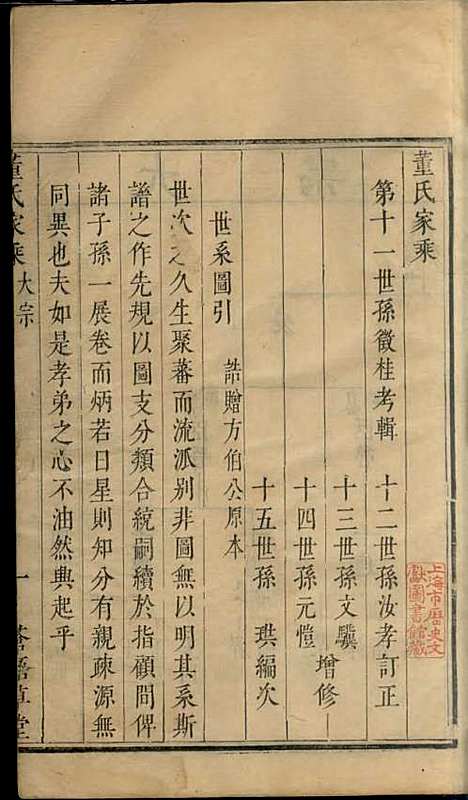 董氏家乘
第十一世孫徵桂考輯　十二世孫汝孝訂正
十三世孫文驥
十四世孫元愷
增修
十五世孫　珙編次
世系圖引　誥贈方伯公原本
世次之久生聚蕃而流派別非圖無以明其系斯
譜之作先規以圖支分類合統嗣續於指顧間俾
諸子孫一展卷而炳若日星則知分有親疎源無
同異也夫如是孝弟之心不油然興起乎
董氏家乘　大宗　一
草堂
上海市歷史文
獻圖書館藏